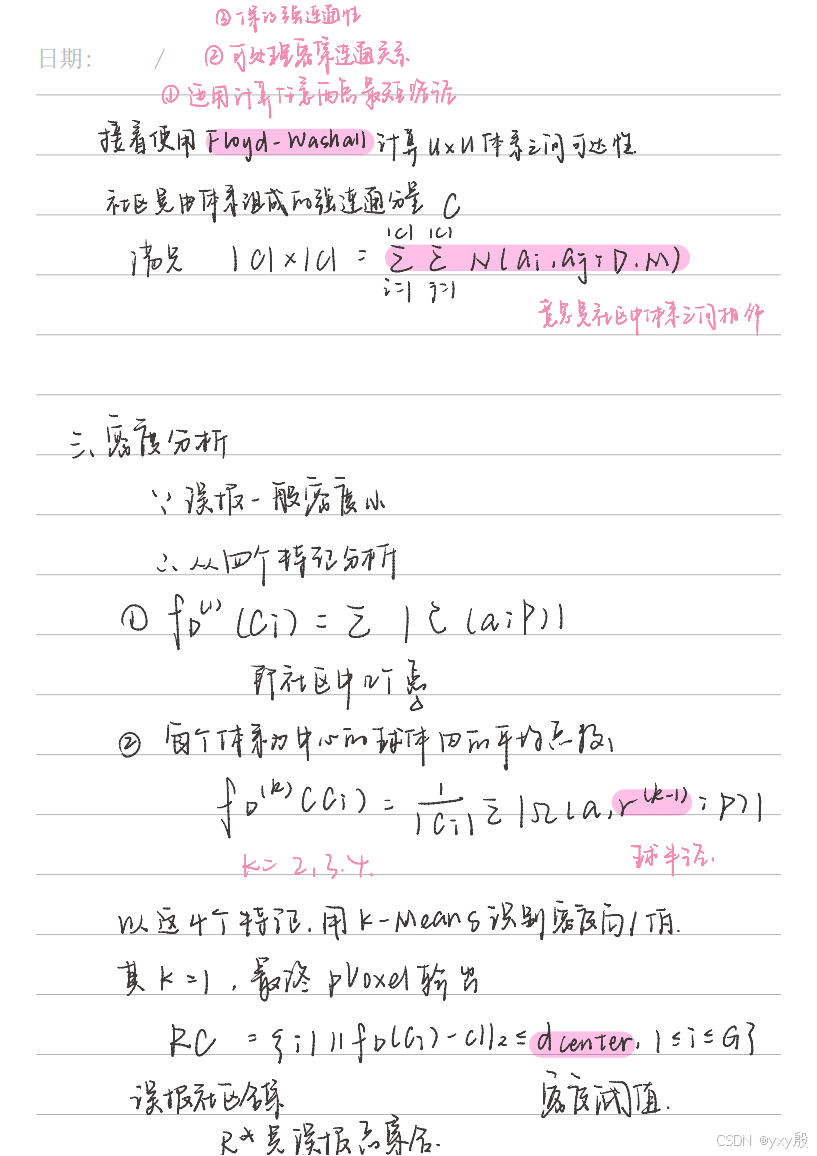 ③保证强连通性
日期: / ②可处理密集连通关系
①适用计算任意两点最短路径
接着使用 Floyd-Washall 计算 u×u 体素之间可达性.
社区是由体素组成的强连通分量 C
满足 |C|×|C| = \sum_{i=1}^{|C|} \sum_{j=1}^{|C|} N(ai, aj; D, M)
意思是社区中体素之间相邻
三、密度分析
∵ 误报一般密度小
∴ 从四个特征分析
① f_D^{(1)}(Ci) = Σ |ξ(a;P)|
即社区中几个点
② 每个体素为中心的球体内的平均点数,
f_D^{(k)}(Ci) = \frac{1}{|Ci|} Σ |Ω(a, r^{(k-1)}; P)|
k=2,3,4. 球半径.
以这4个特征.用K-Means识别密度向值.
其 K=1,最终 pVoxel 输出
RC = {i| ||f_D(Ci)-c||_2 ≤ dcenter, 1≤i≤G}
误报社区合集 密度阈值.
R* 是误报点集合.
CSDN @yxy殷